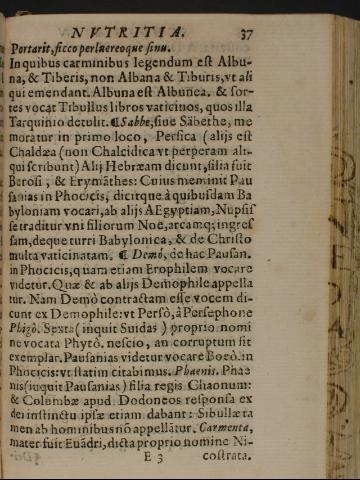 NVTRITIA. 37
Portarit, sicco perlueréoque sinu.
In quibus carminibus legendum est Albu-
na, & Tiberis, non Albana & Tiburis, vt ali
qui emendant. Albuna est Albunea. & sor-
tes vocat Tibullus libros vaticinos, quos illa
Tarquinio detulit. ¶ Sabbe, siue Sabethe, me
moratur in primo loco, Persica (alijs est
Chaldæa (non Chalcidica vt perperam ali-
qui scribunt) Alij Hebræam dicunt, filia fuit
Berosi, & Erymāthes: Cuius meminit Pau
sanias in Phocicis, dicitque à quibusdam Ba
byloniam vocari, ab alijs AEgyptiam, Nupsis
se traditur vni filiorum Noë, arcamq; ingres
sam, deque turri Babylonica, & de Christo
multa vaticinatam. ¶ Demò, de hac Pausan.
in Phocicis, quam etiam Erophilem vocare
videtur. Quæ & ab alijs Demophile appella
tur. Nam Demò contractam esse vocem di-
cunt ex Demophile: vt Persò, à Persephone
Phigò. Sexta (inquit Suidas) proprio nomi
ne vocata Phytò. nescio, an corruptum sit
exemplar. Pausanias videtur vocare Boeò. in
Phocicis: vt statim citabimus. Phaenis. Phae
nis (inquit Pausanias) filia regis Chaonum:
& Columbæ apud Dodoneos responsa ex
dei instinctu ipsæ etiam dabant: Sibullæ ta
men ab hominibus nō appellātur. Carmenta,
mater fuit Euādri, dicta proprio nomine Ni-
E 3 costrata.